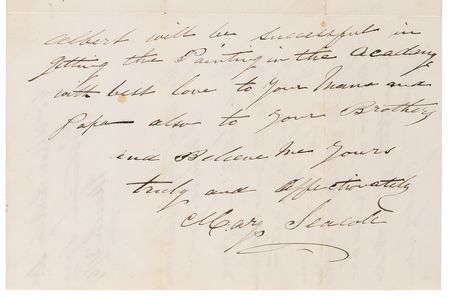 Albert will be successful in
getting the Painting in the Academy
with best love to Your Mama and
Papa also to Your Brothers
and Believe Me Yours
truly and Affectionately
Mary Seacole